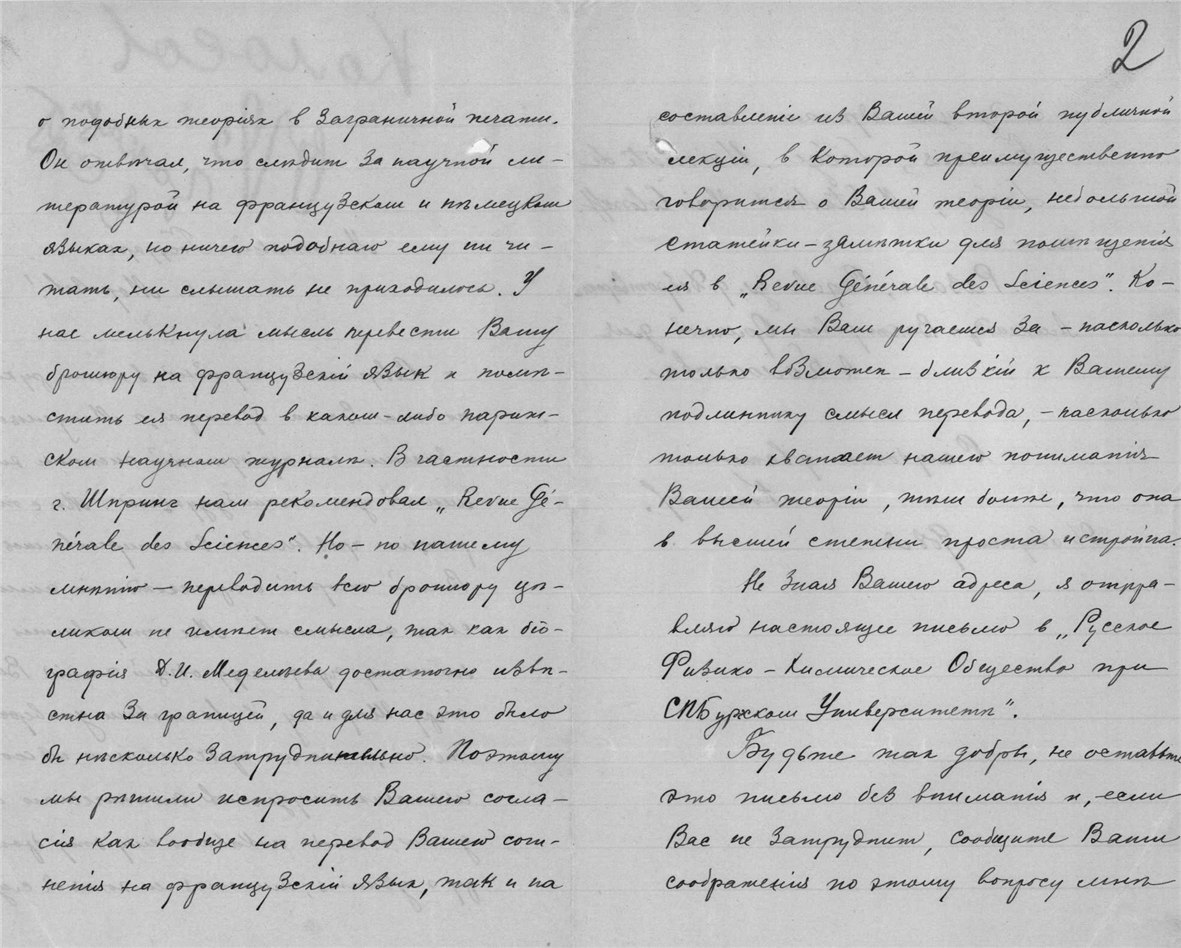 2
о подобных теоріях в Заграничной печати.
Он отвѣчал, что слѣдит за научной ли-
тературой на французском и нѣмецком
языках, но ничего подобнаго ему ни чи-
тать, ни слышать не приходилось. У
нас мелькнула мысль перевести Вашу
брошюру на французскій язык и помѣ-
стить ея перевод в каком-либо париж-
ском научном журналѣ. В частности
г. Шпринг нам рекомендовал „Revue Gé-
nérale des Sciences“. Но – по нашему
мнѣнію – переводить всю брошюру цѣ-
ликом не имѣет смысла, так как біо-
графія Д.И. Менделѣева достаточно извѣ-
стна за границей, да и для нас это было
бы нѣсколько затруднительно. Поэтому
мы рѣшили испросить Вашего согла-
сія как вообще на перевод Вашего сочи-
ненія на французскій язык, так и на
составленіе из Вашей второй публичной
лекціи, в которой преимущественно
говорится о Вашей теоріи, небольшой
статейки – замѣтки для помѣщенія
ея в „Revue Générale des Sciences“. Ко-
нечно, мы Вам ручаемся за – насколько
только возможен – близкій к Вашему
подлиннику смысл перевода, – насколько
только хватает нашего пониманія
Вашей теоріи, тѣм болѣе, что она
в высшей степени проста и стройна.
Не зная Вашего адреса, я отпра-
вляю настоящее письмо в „Русское
Физико-Химическое Общество при
СПБуржском Университетѣ“.
Будьте так добры, не оставьте
это письмо без вниманія и, если
Вас не затруднит, сообщите Ваши
соображенія по этому вопросу мнѣ